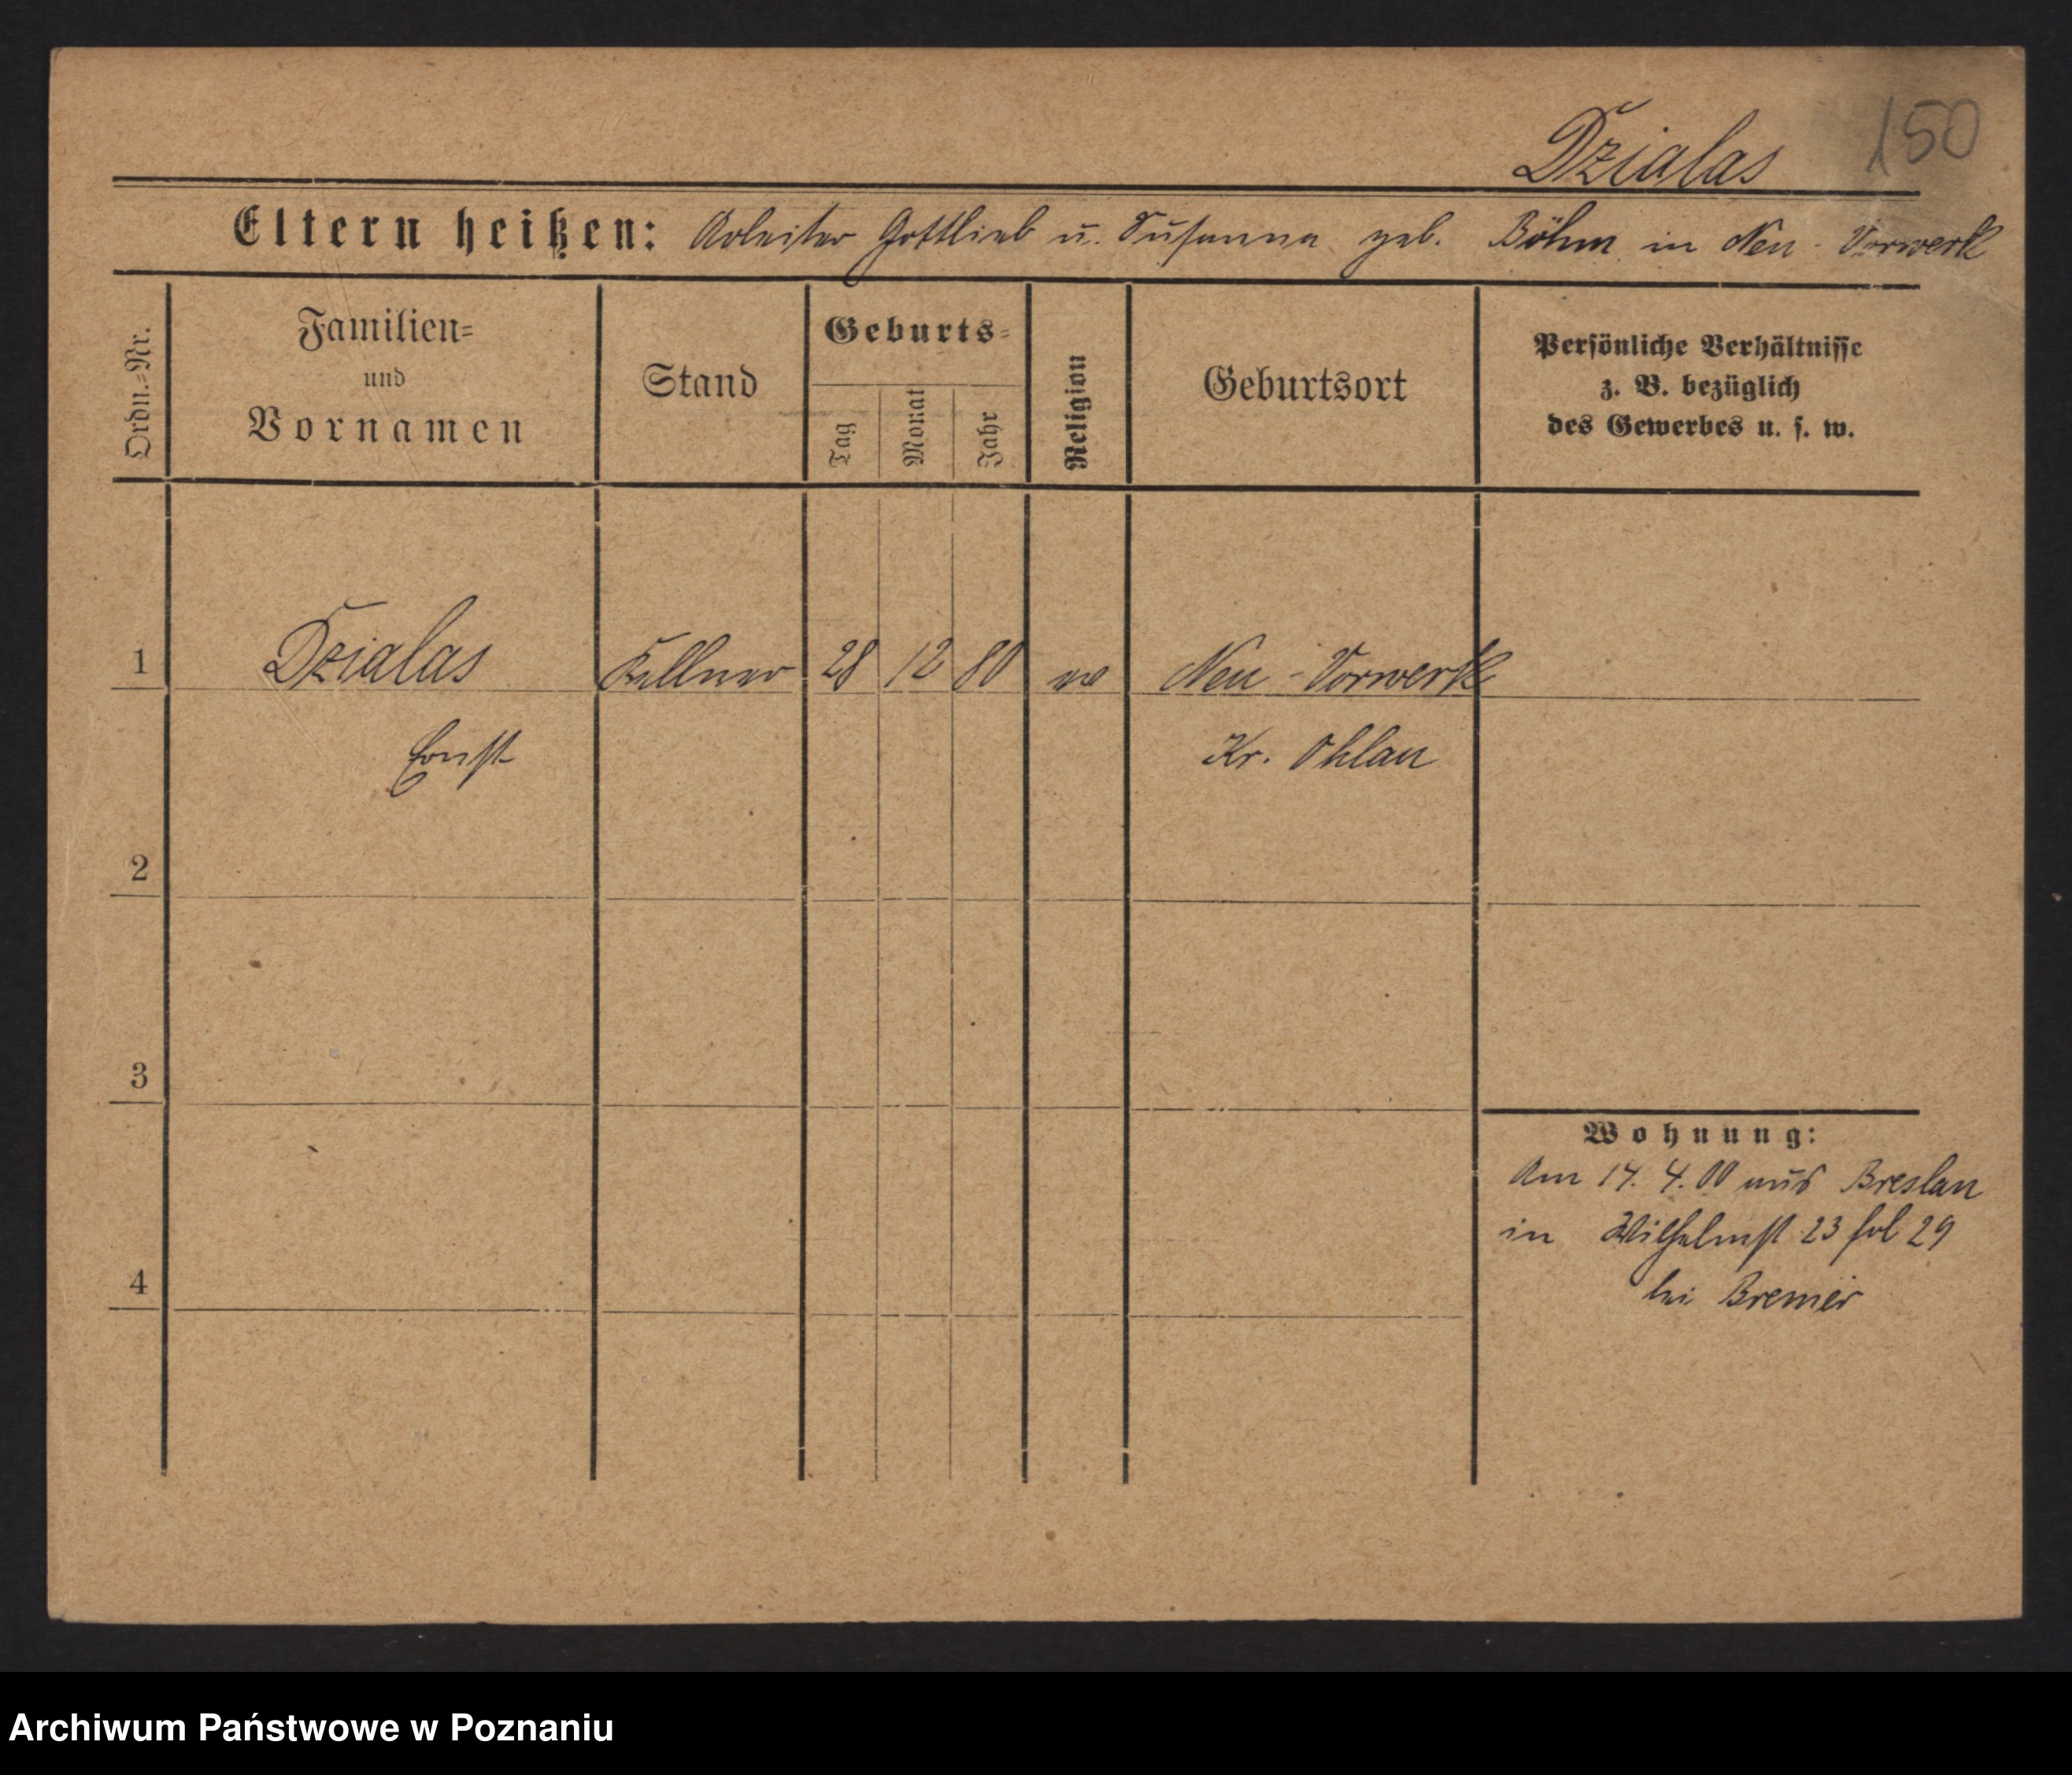 150
Dzialas
Eltern heißen: Arbeiter Gottlieb u. Susanna geb. Böhm in Neu-Vorwerk
Ordn.=Nr.
Familien=
und
Vornamen
Stand
Geburts=
Tag
Monat
Jahr
Religion
Geburtsort
Persönliche Verhältnisse
z. B. bezüglich
des Gewerbes u. s. w.
1 Dzialas Kellner 28 12 80 ev Neu-Vorwerk
Ernst Kr. Ohlau
2
3
Wohnung:
Am 14. 4. 00 aus Breslau
in Wilhelmst 23 fol 29
4
bei Bremer
Archiwum Państwowe w Poznaniu